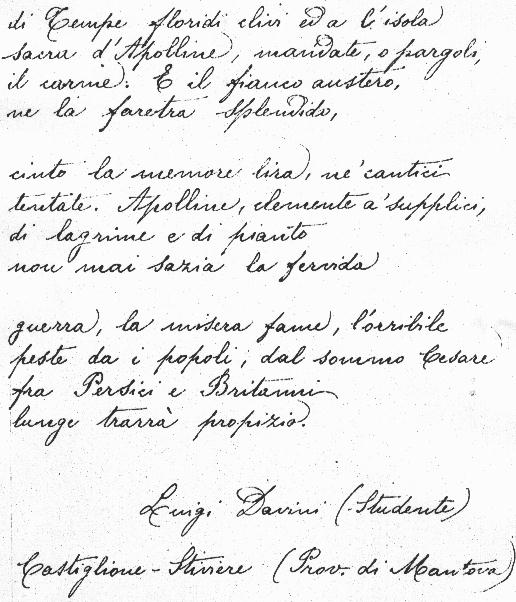 di Tempe floridi clivi ed a l'isola
sacra d'Apolline, mandate, o pargoli,
il carme. E il fianco austero,
ne la faretra splendido,
cinto la memore lira, ne' cantici
tentate. Apolline, clemente a' supplici,
di lagrime e di pianto
non mai sazia la fervida
guerra, la misera fame, l'orribile
peste da i popoli, dal sommo Cesare
fra Persici e Britanni
lunge trarrà propizio.
Luigi Davini (Studente)
Castiglione - Stiviere (Prov. di Mantova)